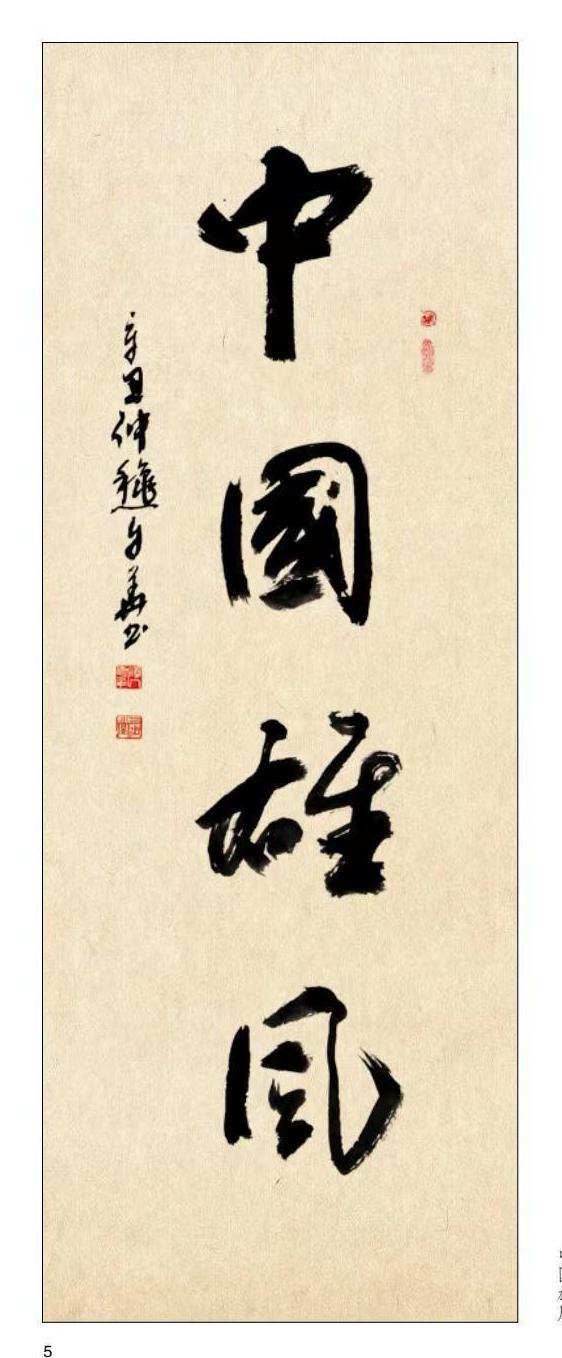 中國雄風
辛丑仲龝
5